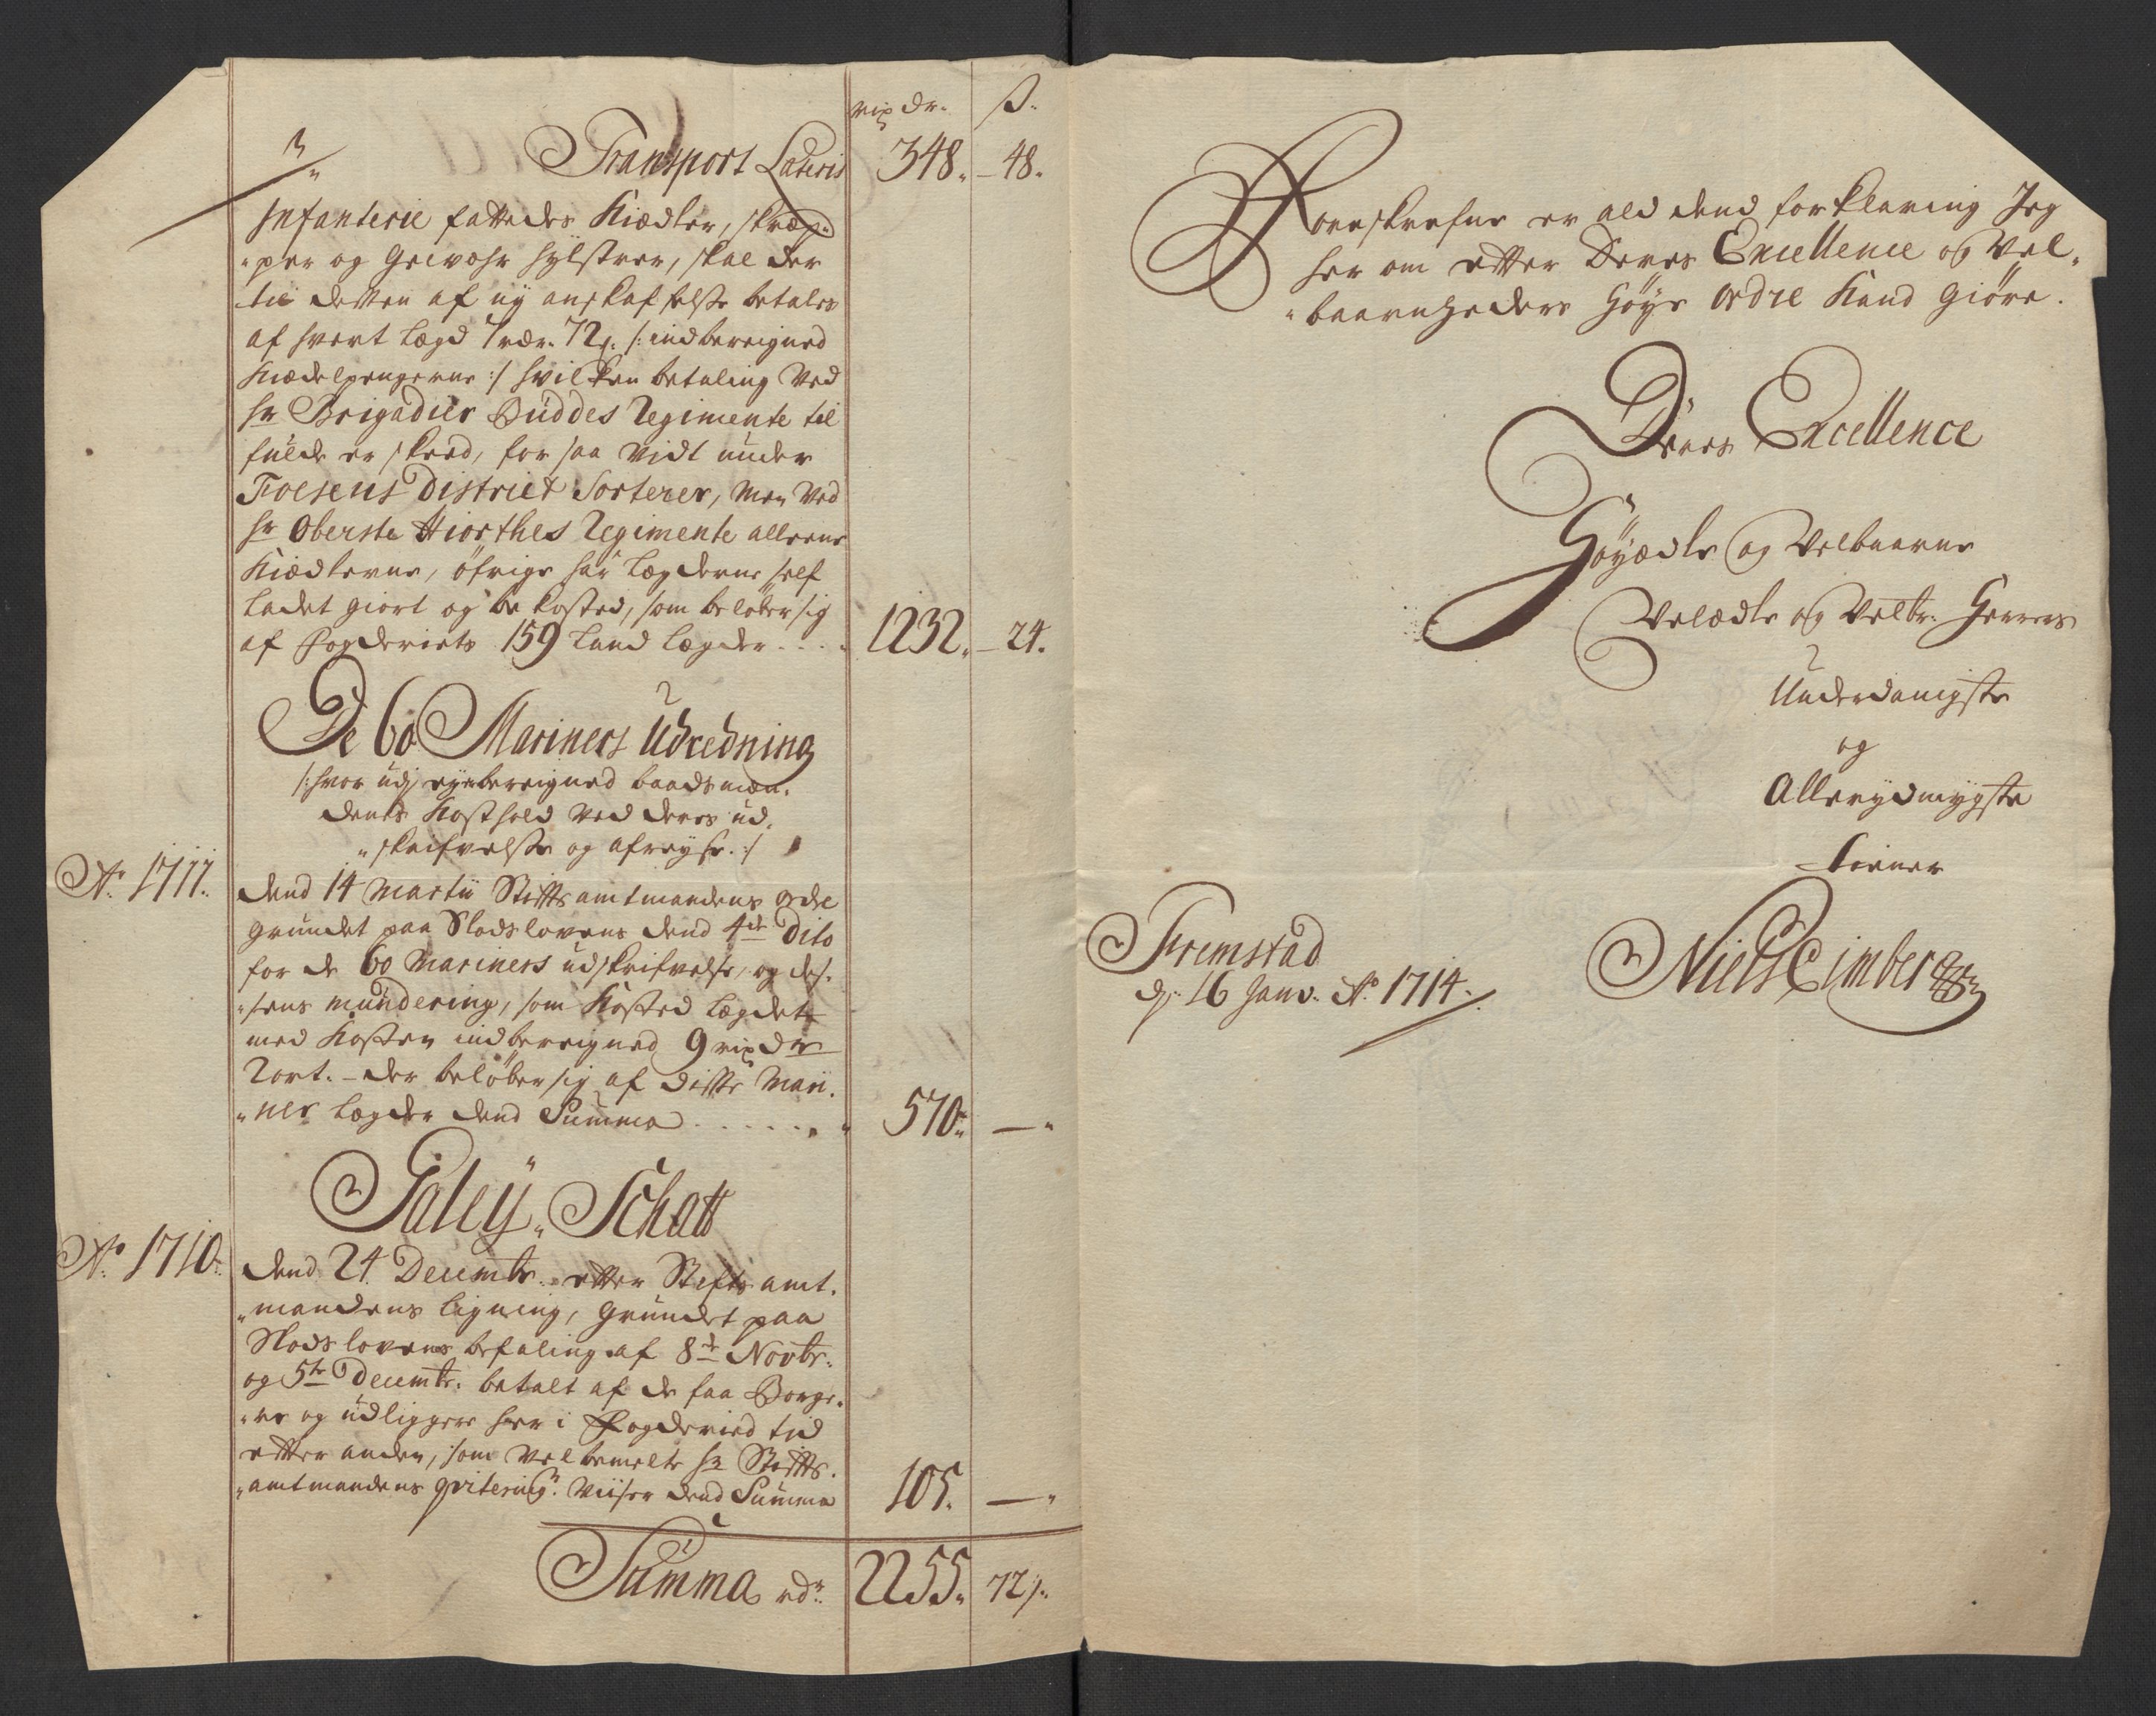 rixdr. ß.
Transport Lateris 348. – 48.
Infanterie fattedes Kiædler, skræp-
"per og Gewohr hylstrer, skal der
til dessen af ny anskaffelse betales
af hvert Lægd 7 rdr. 72 s. /: indbereigned
Kiedelpengene :/ hvilken betaling ved
hr Brigadier Buddes Regimente til
fulde er skeed, for saa vidt under
Foesens District Sorterer, men ved
hr Oberste Hiorthes Regimente alleene
Kiædlerne, öfrige har Lægderne self
ladet giort og bekosted, som beløber sig
af Fogderiets 159 Land Lægder . . . . 1232. – 24.
De 60 Mariners Udredning
/: hvor udj eyebereigned baadsmæn-
denes Kosthold ved deres ud-
"skrifvelse og afreyse :/
Ao 1711. dend 14 Martii Stiftsamtmandens ordre
grundet paa Slodslovens dend 4de Dito
for de 60 Mariners udskrifvelse, og des-
"sens mundering, som Kosted Lægdet
med Kosten indbereigned 9 rixdr
2 ort. – der beløber sig af disse Mari-
"ner Lægder dend Summa . . . . . . 570. —
Galey-Schatt
Ao 1710. dend 24. Decembr. etter Stiftsamt-
"mandens ligning, grundet paa
Slodslovens befaling af 8de Novbr.
og 5te Decembr. betalt af de faa Borge-
"re og udliggere her i Fogderied tid
etter anden, som velbemelte hr Stiffts-
"amtmandens qvitering. viiser dend Summa 105. —
Summa rdr. 2255. 72 s.
Foreskrefne er ald dend forklaring Jeg
her om etter Deres Excellence og Vel-
"baarnheders høye Ordre Kand giöre.
Deres Excellence
Höyædle og Velbaarne
Velædle og Velbr. Herrers
Underdanigste
og
Allerydmygste
tiener
Fremstad
d. 16 Janv. Ao 1714.
Niels Cimber